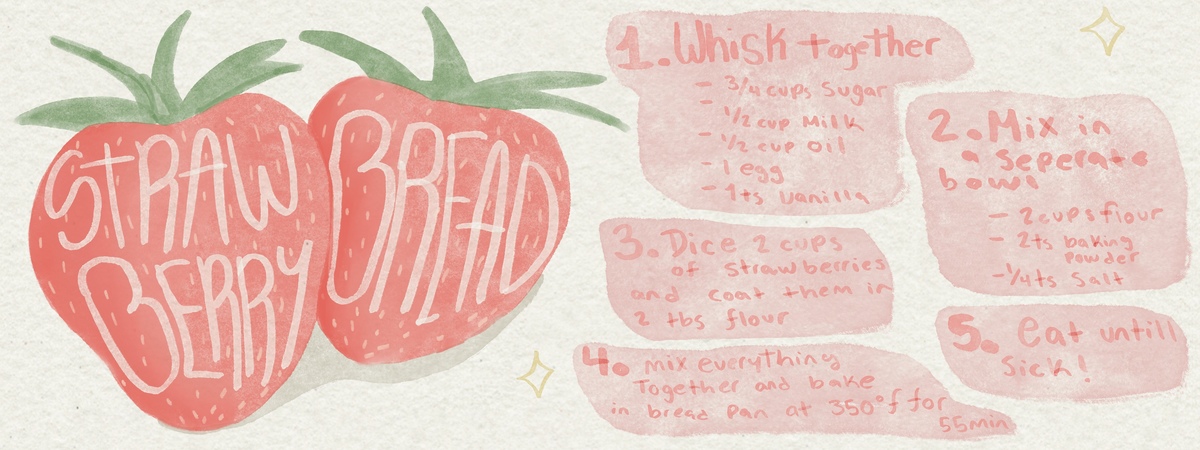 STRAW
BERRY
BREAD
1. Whisk together
- 3/4 cups Sugar
- 1/2 cup Milk
- 1/2 cup Oil
- 1 egg
- 1ts Vanilla
2. Mix in
a seperate
bowl
- 2 cups flour
- 2ts baking
powder
- 1/4ts Salt
3. Dice 2 cups
of strawberries
and coat them in
2 tbs flour
4. mix everything
Together and bake
in bread pan at 350°f for
55min
5. eat untill
Sick!